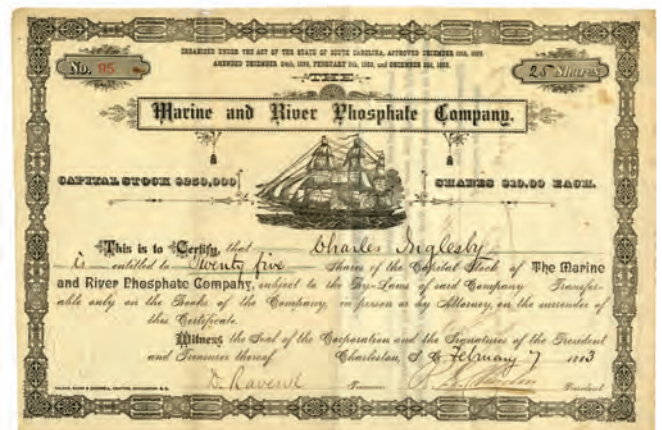 ORGANIZED UNDER THE ACT OF THE STATE OF SOUTH CAROLINA, APPROVED DECEMBER
AMENDED DECEMBER FEBRUARY and DECEMBER
No. 95
25 Shares
THE
Marine and River Phosphate Company.
CAPITAL STOCK $250,000
SHARES $10.00 EACH.
This is to Certify, that Charles Inglesby
is entitled to Twenty five Shares of the Capital Stock of The Marine
and River Phosphate Company, subject to the By-Laws of said Company Transfer-
able only on the Books of the Company, in person or by Attorney, on the surrender of
this Certificate.
Witness the Seal of the Corporation and the Signatures of the President
and Treasurer thereof Charleston, S. C. February 7 1883
D. Ravenel Treasurer President